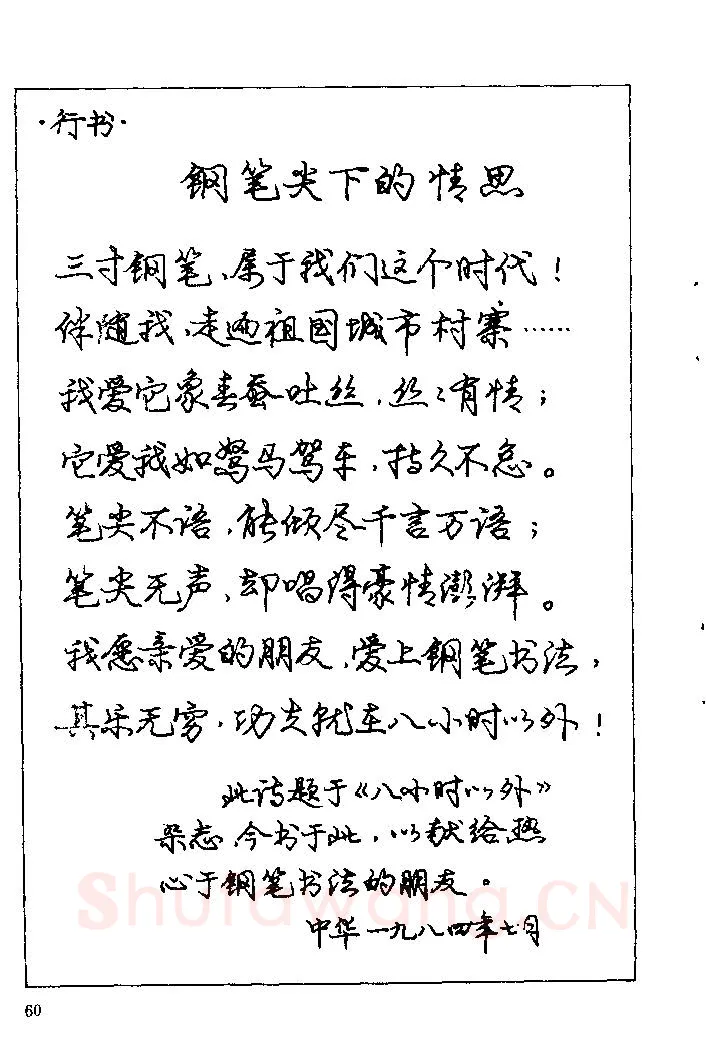 ·行书·
钢笔尖下的情思
三寸钢笔，属于我们这个时代！
伴随我，走遍祖国城市村寨……
我爱它象春蚕吐丝，丝丝有情；
它爱我如驽马驾车，持久不怠。
笔尖不语，能倾尽千言万语；
笔尖无声，却唱得豪情澎湃。
我愿亲爱的朋友，爱上钢笔书法，
其乐无穷，功夫就在八小时以外！
此诗题于《八小时以外》
杂志，今书于此，以献给热
心于钢笔书法的朋友。
中华一九八四年七月
Shufawang.CN
60